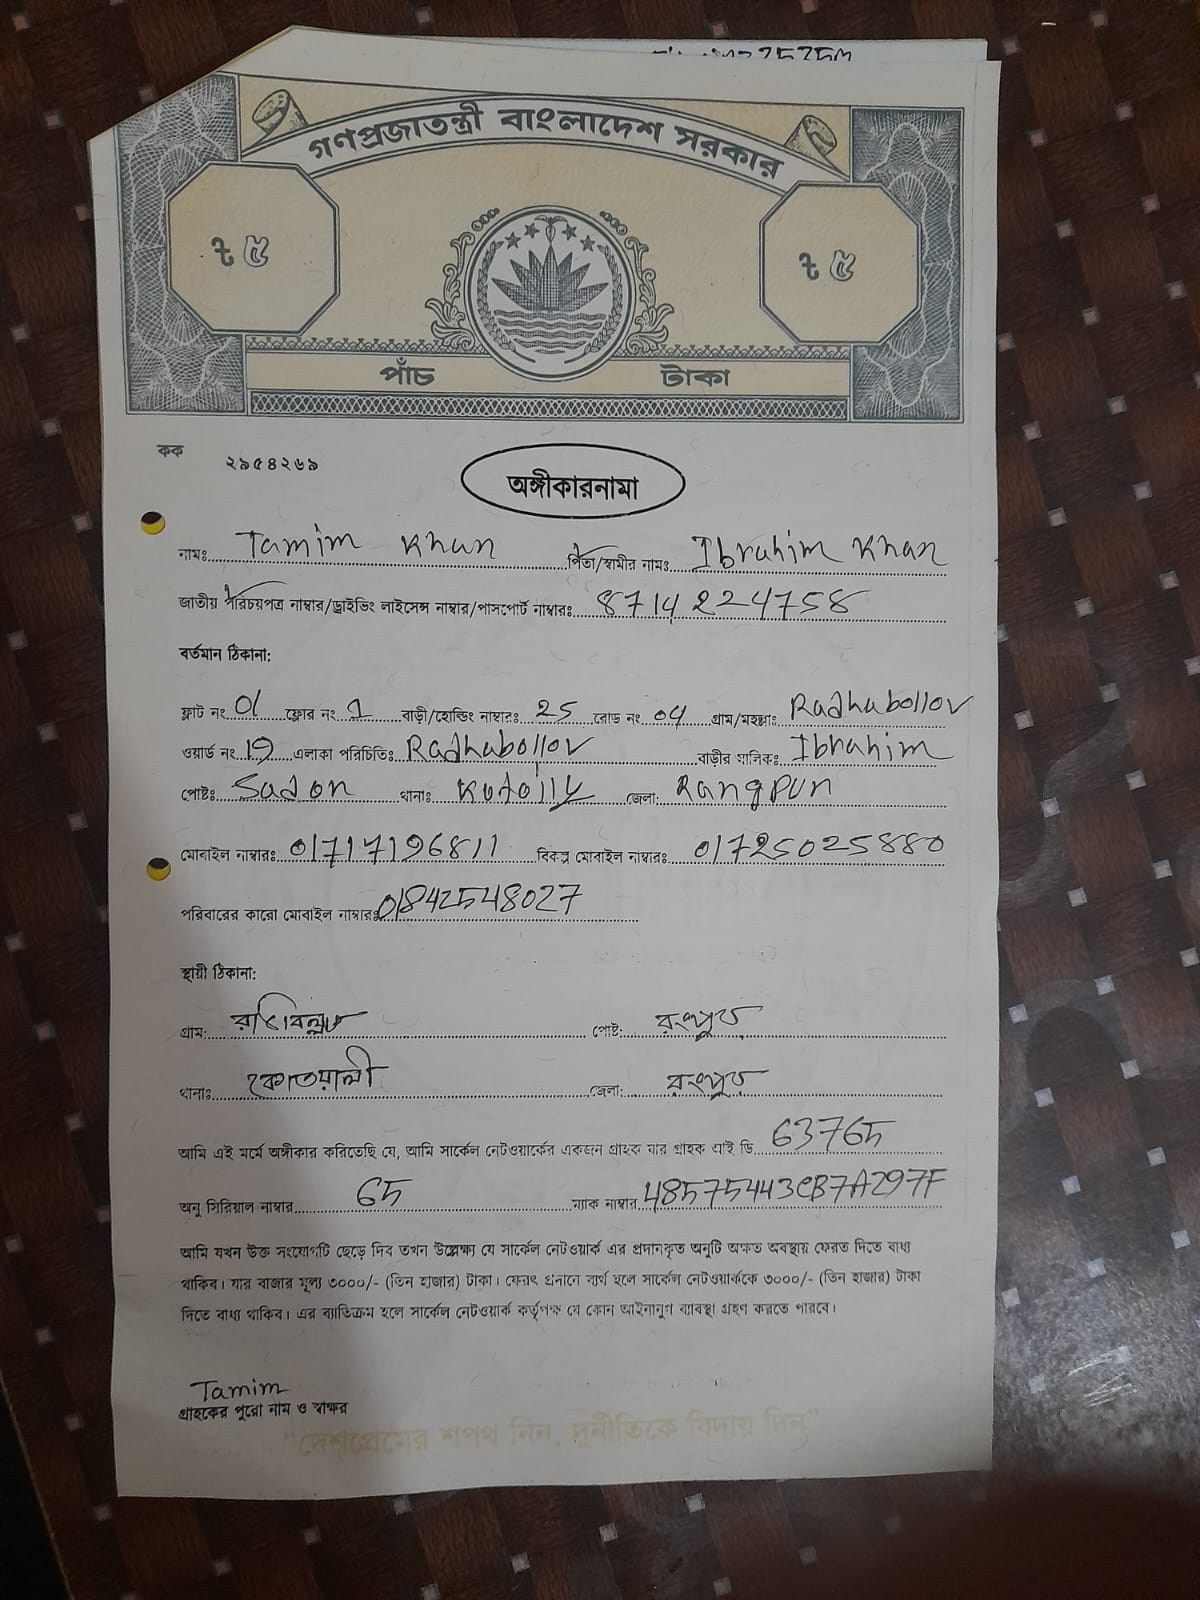 গণপ্রজাতন্ত্রী বাংলাদেশ সরকার
৳ ৫ ৳ ৫
পাঁচ টাকা
কক ২৯৫৪২৬৯
অঙ্গীকারনামা
নামঃ Tamim Khan পিতা/স্বামীর নামঃ Ibrahim Khan
জাতীয় পরিচয়পত্র নাম্বার/ড্রাইভিং লাইসেন্স নাম্বার/পাসপোর্ট নাম্বারঃ 8714224758
বর্তমান ঠিকানা:
ফ্লাট নং 01 ফ্লোর নং 1 বাড়ী/হোল্ডিং নাম্বারঃ 25 রোড নং 04 গ্রাম/মহল্লাঃ Radhabollov
ওয়ার্ড নং 19 এলাকা পরিচিতিঃ Radhabollov বাড়ীর মালিকঃ Ibrahim
পোষ্টঃ Sador থানাঃ Kotoily জেলা: Rangpur
মোবাইল নাম্বারঃ 01717196811 বিকল্প মোবাইল নাম্বারঃ 01725025880
পরিবারের কারো মোবাইল নাম্বারঃ 01842548027
স্থায়ী ঠিকানা:
গ্রাম: রাধাবল্লভ পোষ্ট: রংপুর
থানাঃ কোতয়ালী জেলা: রংপুর
আমি এই মর্মে অঙ্গীকার করিতেছি যে, আমি সার্কেল নেটওয়ার্কের একজন গ্রাহক যার গ্রাহক আই ডি 63765
অনু সিরিয়াল নাম্বার 65 ম্যাক নাম্বার 48575443CB7A297F
আমি যখন উক্ত সংযোগটি ছেড়ে দিব তখন উল্লেক্ষ্য যে সার্কেল নেটওয়ার্ক এর প্রদানকৃত অনুটি অক্ষত অবস্থায় ফেরত দিতে বাধ্য
থাকিব। যার বাজার মূল্য ৩০০০/- (তিন হাজার) টাকা। ফেরৎ প্রদানে ব্যর্থ হলে সার্কেল নেটওয়ার্ককে ৩০০০/- (তিন হাজার) টাকা
দিতে বাধ্য থাকিব। এর ব্যাতিক্রম হলে সার্কেল নেটওয়ার্ক কর্তৃপক্ষ যে কোন আইনানুগ ব্যাবস্থা গ্রহণ করতে পারবে।
Tamim
গ্রাহকের পুরো নাম ও স্বাক্ষর
"দেশপ্রেমের শপথ নিন, দুর্নীতিকে বিদায় দিন"